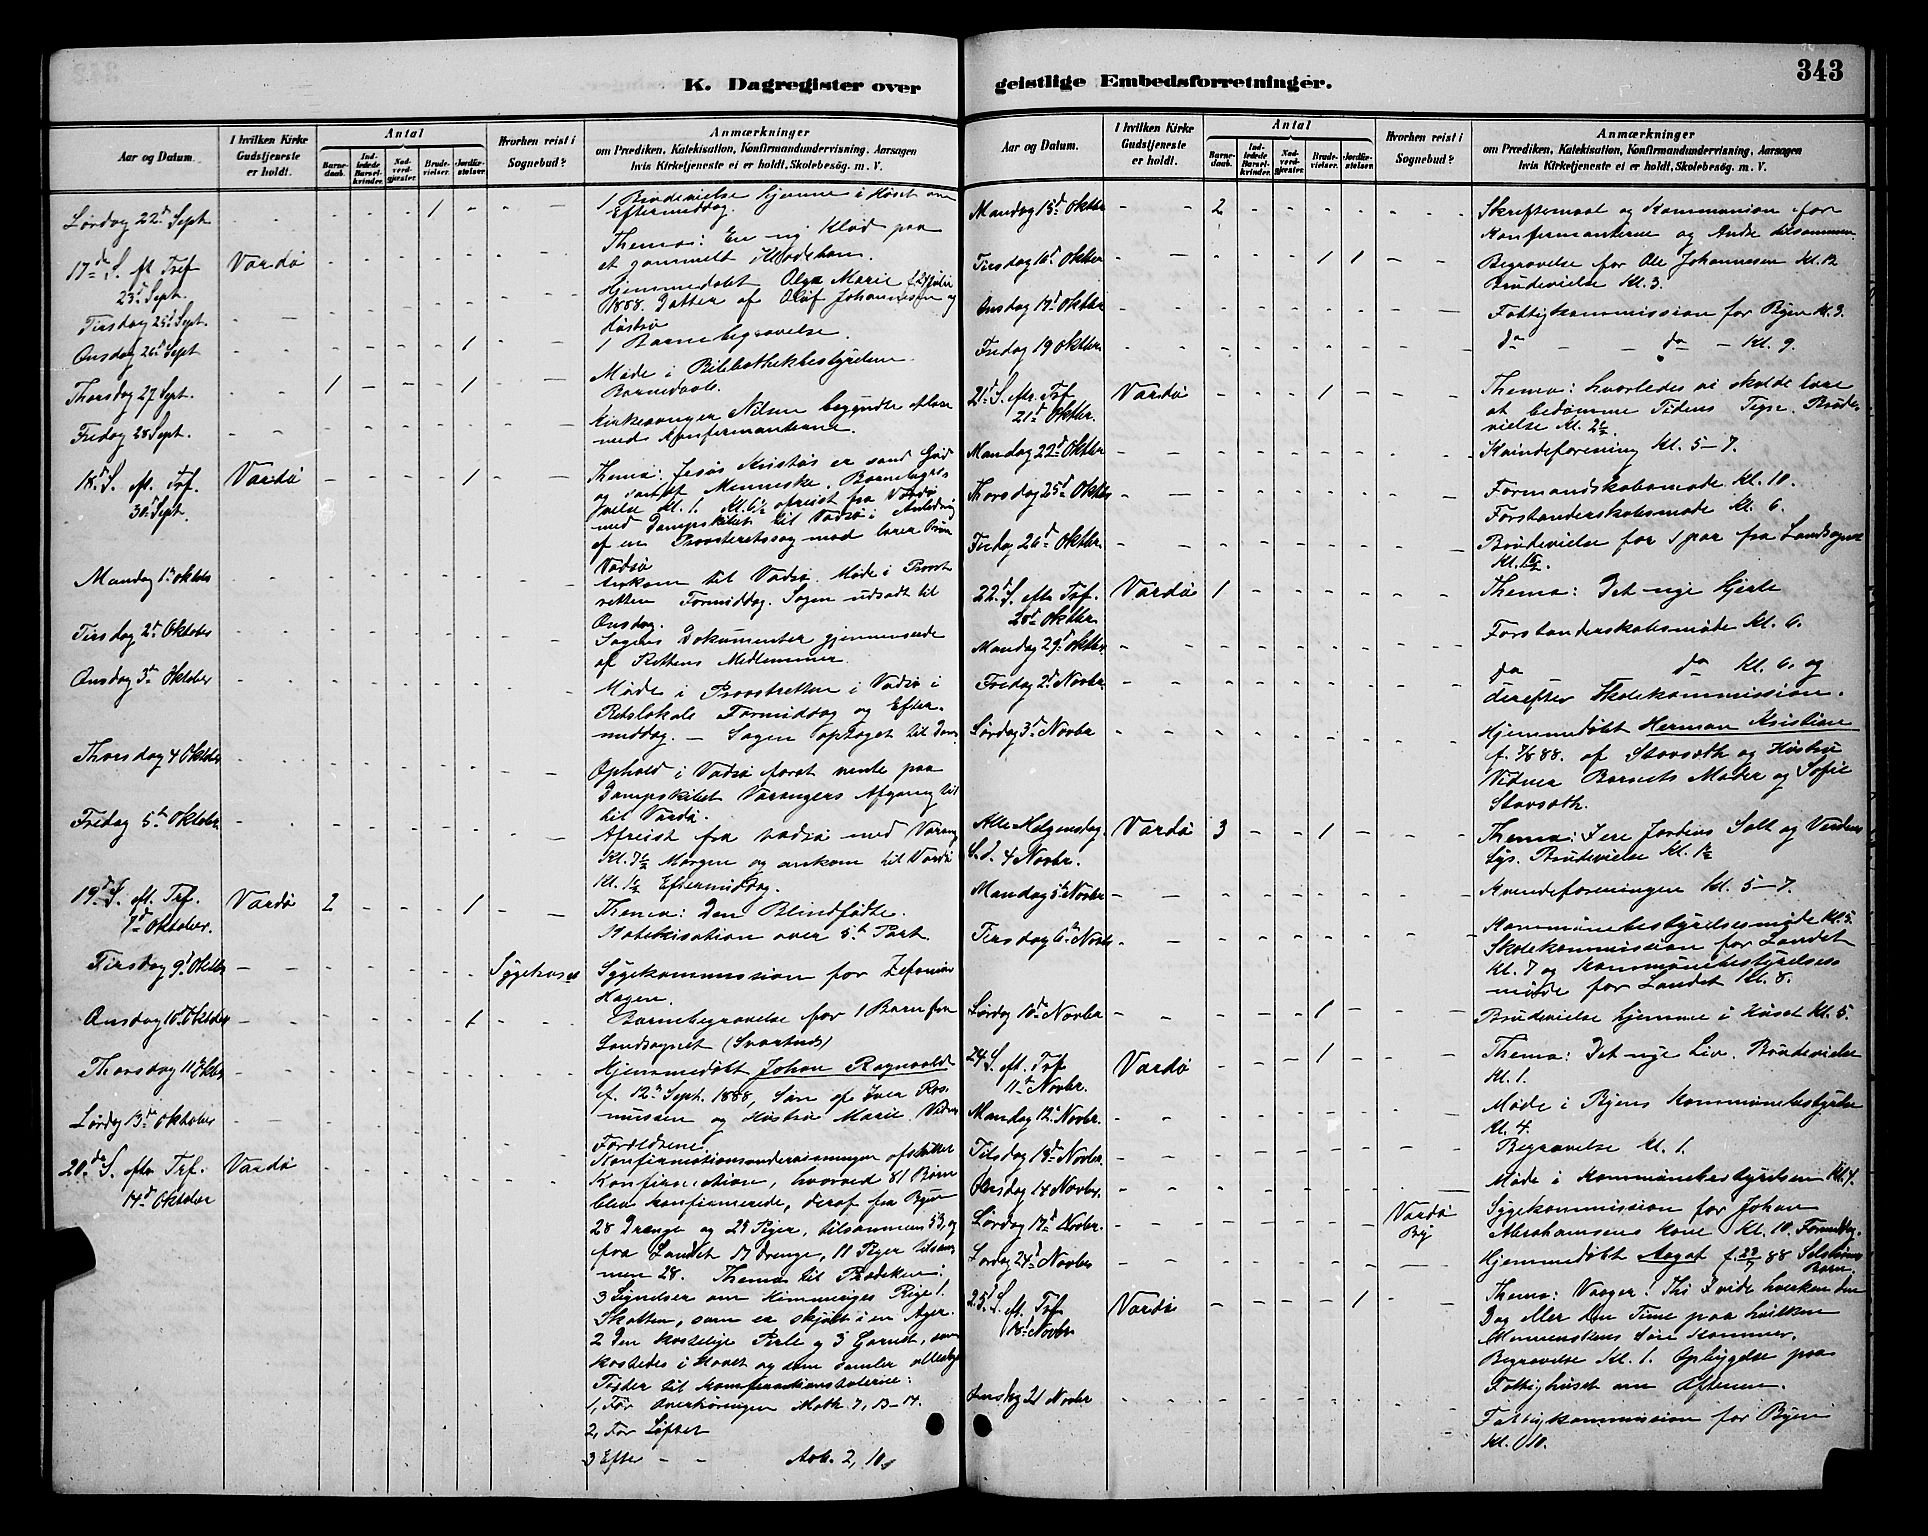 343
K. Dagregister over
geistlige Embedsforretninger.
Aar og Datum.
I hvilken Kirke Gudstjeneste er holdt.
Antal
Barne-daab.
Ind-ledede Barsel-kvinder.
Nad-verd-gjæster.
Brude-vielser.
Jordfæ-stelser.
Hvorhen reist i Sognebud?
Anmærkninger
om Prædiken, Katekisation, Konfirmandundervisning, Aarsagen
hvis Kirketjeneste ei er holdt, Skolebesøg. m. V.
Lørdag 22d Sept. 1
1 Brudevielse hjemme i Huset om
Eftermiddag.
17de S. ft Tref
23d Sept. Vardø
Thema: En ny Klud paa
et gammelt Klædebon.
Tirsdag 25d Sept.
Hjemmedøbt Olga Marie f. 24 Juli
1888. Datter af Oluf Johannesen og
Hustru
Onsdag 26d Sept 1
1 Barnebegravelse.
Thorsdag 27 Sept. 1 1
Møde i Bibliothekbestyrelsen.
Barnedaab.
Fredag 28 Sept.
Kirkesanger Nilsen begyndte oflæse
med Konfirmanterne.
18d S. ft. Trf.
30d Sept. Vardø 1
Thema: Jesus Kristus er sand Gud
og sandt Menneske. Barnebegra-
velse Kl. 1. Kl. 6½ afreist fra Vardø
med Dampskibet til Vadsø i Anledning
af en Provsteretssag mod lærer
Vadsø
Mandag 1ste Oktober
Ankom til Vadsø. Møde i Provst
retten Formiddag. Sagen udsadt til
Onsdag.
Tirsdag 2d Oktober
Sagens Dokumenter gjennemsede
af Rettens Medlemmer.
Onsdag 3de Oktober
Møde i Provstretten i Vadsø i
Retslokale Formiddag og Efter-
middag. — Sagen optaget til Dom.
Thorsdag 4 Oktober
Ophold i Vadsø foret vente paa
Dampskibet Varangers Afgang til
til Vardø.
Fredag 5te Oktober
Afreist fra Vadsø med Varang.
Kl. 7½ Morgen og ankom til Vardø
Kl. 1½ Eftermiddag.
19d S. ft. Trf.
7d Oktober. Vardø 2 1
Thema: Den Blindfødte.
Katekisation over 5te Part.
Tirsdag 9d Oktbr Sygehuset
Sygekommunion for Zefanias
Hagen.
Onsdag 10d Oktober 1
Barnebegravelse for 1 Barn fra
Landsognet (Svartnes)
Thorsdag 11 Oktbr
Hjemmedøbt Johan Ragnvald
f. 12te Sept. 1888, Søn af Iver Ras-
mussen og Hustru Marie. Vidner
Forældrene.
Lørdag 13d Oktober
Konfirmationsundervisningen afsluttet
20de S. eftr Trf.
14d Oktober Vardø
Konfirmation, hvorved 81 Børn
blev konfirmerede, deraf fra Byen
28 Drenge og 25 Piger, tilsammen 53, og
fra Landet 17 Drenge, 11 Piger tilsam-
men 28. Thema til Prædiken:
3 Lignelser om Himmeriges Rige 1.
Skatten, som er skjult i en Ager.
2 Den kostelige Perle og 3 Garnet, som
kastedes i Havet og som samler alleslags
Texter til Konfirmationstalerne:
1, Før Overhøringen Math. 7, 13–14.
2, Før Løftet
3 Efter — — Aab. 2, 10.
Aar og Datum.
I hvilken Kirke Gudstjeneste er holdt.
Antal
Barne-daab.
Ind-ledede Barsel-kvinder.
Nad-verd-gjæster.
Brude-vielser.
Jordfæ-stelser.
Hvorhen reist i Sognebud?
Anmærkninger
om Prædiken, Katekisation, Konfirmandundervisning, Aarsagen
hvis Kirketjeneste ei er holdt, Skolebesøg. m. V.
Mandag 15d Oktbr 2
Skriftemaal og Kommunion for
Konfirmanterne og Andre tilsammen
Tirsdag 16d Oktbr 1 1
Begravelse for Ole Johannesen Kl. 12
Brudevielse Kl. 3.
Onsdag 17d Oktbr
Fattigkommission for Byen Kl. 9.
Fredag 19 Oktbr.
do — — do — Kl. 9.
21d S. eftr. Trf.
21d Oktbr. Vardø 1
Thema: hvorledes vi skulde lære
at bedømme Tidens Tegn. Brude-
vielse Kl. 2½
Mandag 22d Oktbr
Kvindeforening Kl. 5–7.
Thorsdag 25d Oktbr
Formandskabsmøde Kl. 10.
Forstanderskabsmøde Kl. 6.
Fredag 26d Oktbr.
Brudevielse for 1 par fra Landsognet
22d S. eftr Trf.
28d Oktbr. Vardø 1
Thema: Det nye Hjerte
Mandag 29d Oktbr.
Forstanderskabsmøde Kl. 6.
Fredag 2d Novbr.
do do Kl. 6. og
derefter Skolekommission.
Lørdag 3d Novbr
Hjemmedøbt Herman Kristian
f. 7/8 88. af Stavseth og Hustru
Vidner Barnets Moder og Sofie
Stavseth.
Alle Helgensdag
S.d. 4 Novbr. Vardø 3 1
Thema: I ere Jordens Salt og Verdens
Lys. Brudevielse Kl. 1½
Mandag 5te Novbr
Kvindeforeningen Kl. 5–7.
Tirsdag 6te Novbr
Kommunebestyrelsesmøde Kl. 5.
Skolekommission for Landet
Kl. 7 og Kommunebestyrelses-
møde for Landet Kl. 8.
Lørdag 10de Novbr 1
Brudevielse hjemme i Huset Kl. 5.
24 S. ft. Trf
11te Novbr. Vardø 1
Thema: Det nye Liv. Brudevielse
Kl. 1.
Mandag 12te Novbr.
Møde i Byens Kommunebestyrelse
Kl. 4.
Tirsdag 13de Novbr.
Begravelse Kl. 1.
Onsdag 14 Novbr.
Møde i Kommunebestyrelsen Kl. 4.
Lørdag 17d Novbr. Vardø By
Sygekommission for Johan
Abrahamsens kone Kl. 10. Formiddag.
Lørdag 24d Novbr
Hjemmedøbt Aagot f. 88
Barn.
25d S. ft. Trf
18d Novbr Vardø 1
Thema: Vaager! Thi I vide hverken den
Dag eller den Time paa hvilken
Menneskens Søn kommer.
Begravelse Kl. 1. Opbyggelse paa
Fattighuset om Aftenen.
Onsdag 21 Novbr
Fattigkommission for Byen
Kl. 10.